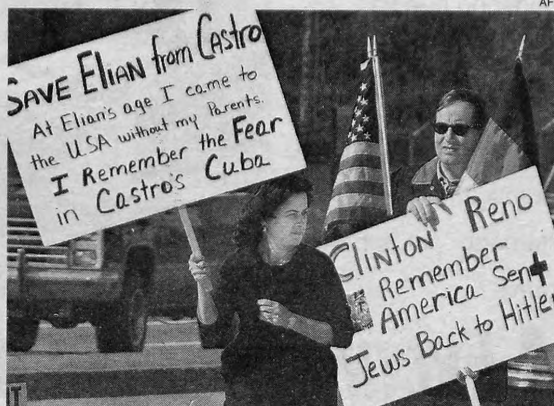 AF
SAVE ELIAN from CASTRO
At Elian's age I came to
the USA without my Parents.
I Remember the Fear
in Castro's Cuba
CLINTON Reno
Remember
America Sent
Jews Back to Hitler
IT